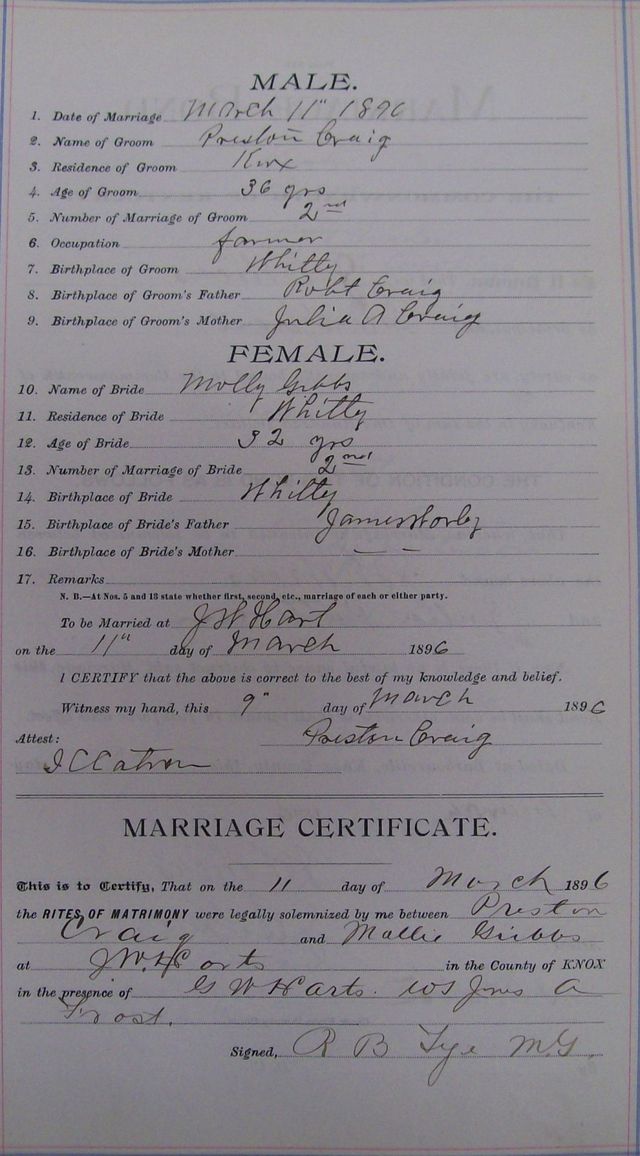 MALE.
1. Date of Marriage March 11" 1896
2. Name of Groom Preston Craig
3. Residence of Groom Knx
4. Age of Groom 36 yrs
5. Number of Marriage of Groom 2nd
6. Occupation farmer
7. Birthplace of Groom Whitly
8. Birthplace of Groom's Father Robt Craig
9. Birthplace of Groom's Mother Julia A Craig
FEMALE.
10. Name of Bride Molly Gibbs
11. Residence of Bride Whitly
12. Age of Bride 32 yrs
13. Number of Marriage of Bride 2nd
14. Birthplace of Bride Whitly
15. Birthplace of Bride's Father James
16. Birthplace of Bride's Mother — —
17. Remarks
N. B.—At Nos. 5 and 13 state whether first, second, etc., marriage of each or either party.
To be Married at J W Hart
on the 11" day of March 1896
I CERTIFY that the above is correct to the best of my knowledge and belief.
Witness my hand, this 9" day of March 1896
Attest: Preston Craig
J C Catron
MARRIAGE CERTIFICATE.
This is to Certify, That on the 11 day of March 1896
the RITES OF MATRIMONY were legally solemnized by me between Preston
Craig and Mollie Gibbs
at J W. Harts in the County of KNOX
in the presence of G W Harts. W S Jones A
Frost.
Signed, R B Tye M.G.